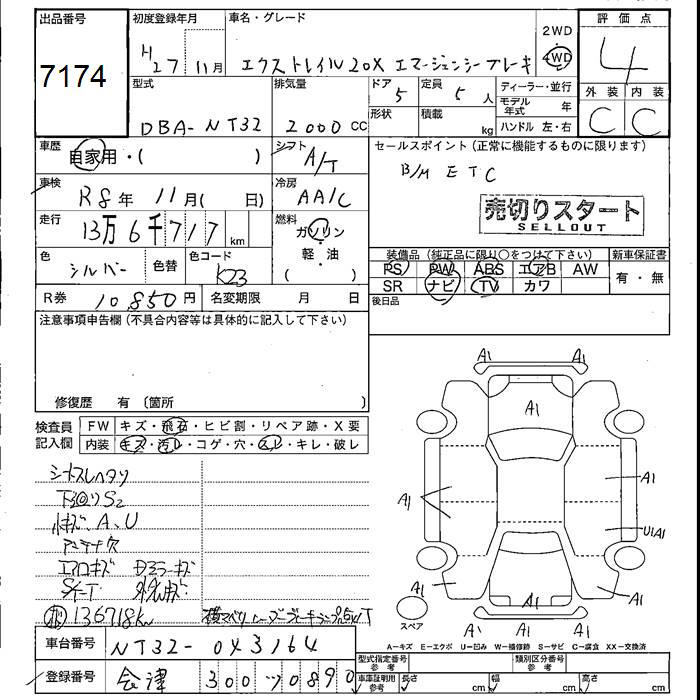 出品番号
7174
初度登録年月
H27年11月
車名・グレード
エクストレイル20X エマージェンシーブレーキ
2WD
4WD
評価点
4
外装 内装
C C
型式
DBA-NT32
排気量
2000 CC
ドア 5
形状
定員 5人
積載 kg
ディーラー・並行
モデル年式 年
ハンドル 左・右
車歴
自家用・( )
シフト
A/T
セールスポイント(正常に機能するものに限ります)
B/M ETC
売切りスタート
SELLOUT
車検
R8年 11月( 日)
冷房
AA/C
走行
13万6千717km
燃料
ガソリン
軽・油
( )
色
シルバー
色替
色コード
K23
装備品(純正品に限り○をつけて下さい)
PS PW ABS エアB AW
SR ナビ TV カワ
新車保証書
有・無
R券 10,850円
名変期限 月 日
後日品
注意事項申告欄(不具合内容等は具体的に記入して下さい)
修復歴 有〔箇所 〕
検査員記入欄
FW キズ・飛石・ヒビ割・リペア跡・X要
内装 キズ・汚レ・コゲ・穴・スレ・キレ・破レ
シートスレヘタリ
下回りS2
小キズ、A、U
アンテナ穴
エアロキズ ドアミラーキズ
136718km
A1 A1
A1
A1
A1
U1A1
A1 A1
A1 A1
スペア
A-キズ E-エクボ U-凹み W-補修跡 S-サビ C-腐食 XX-交換済
車台番号
NT32-043164
登録番号
会津 300 ソ 0890
型式指定番号
参考
類別区分番号
参考
車庫証明用
参考
長さ cm
幅 cm
高さ cm